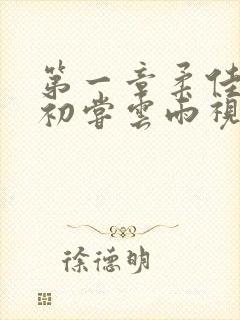 第一章柔佳
初尝云雨视
徐德明